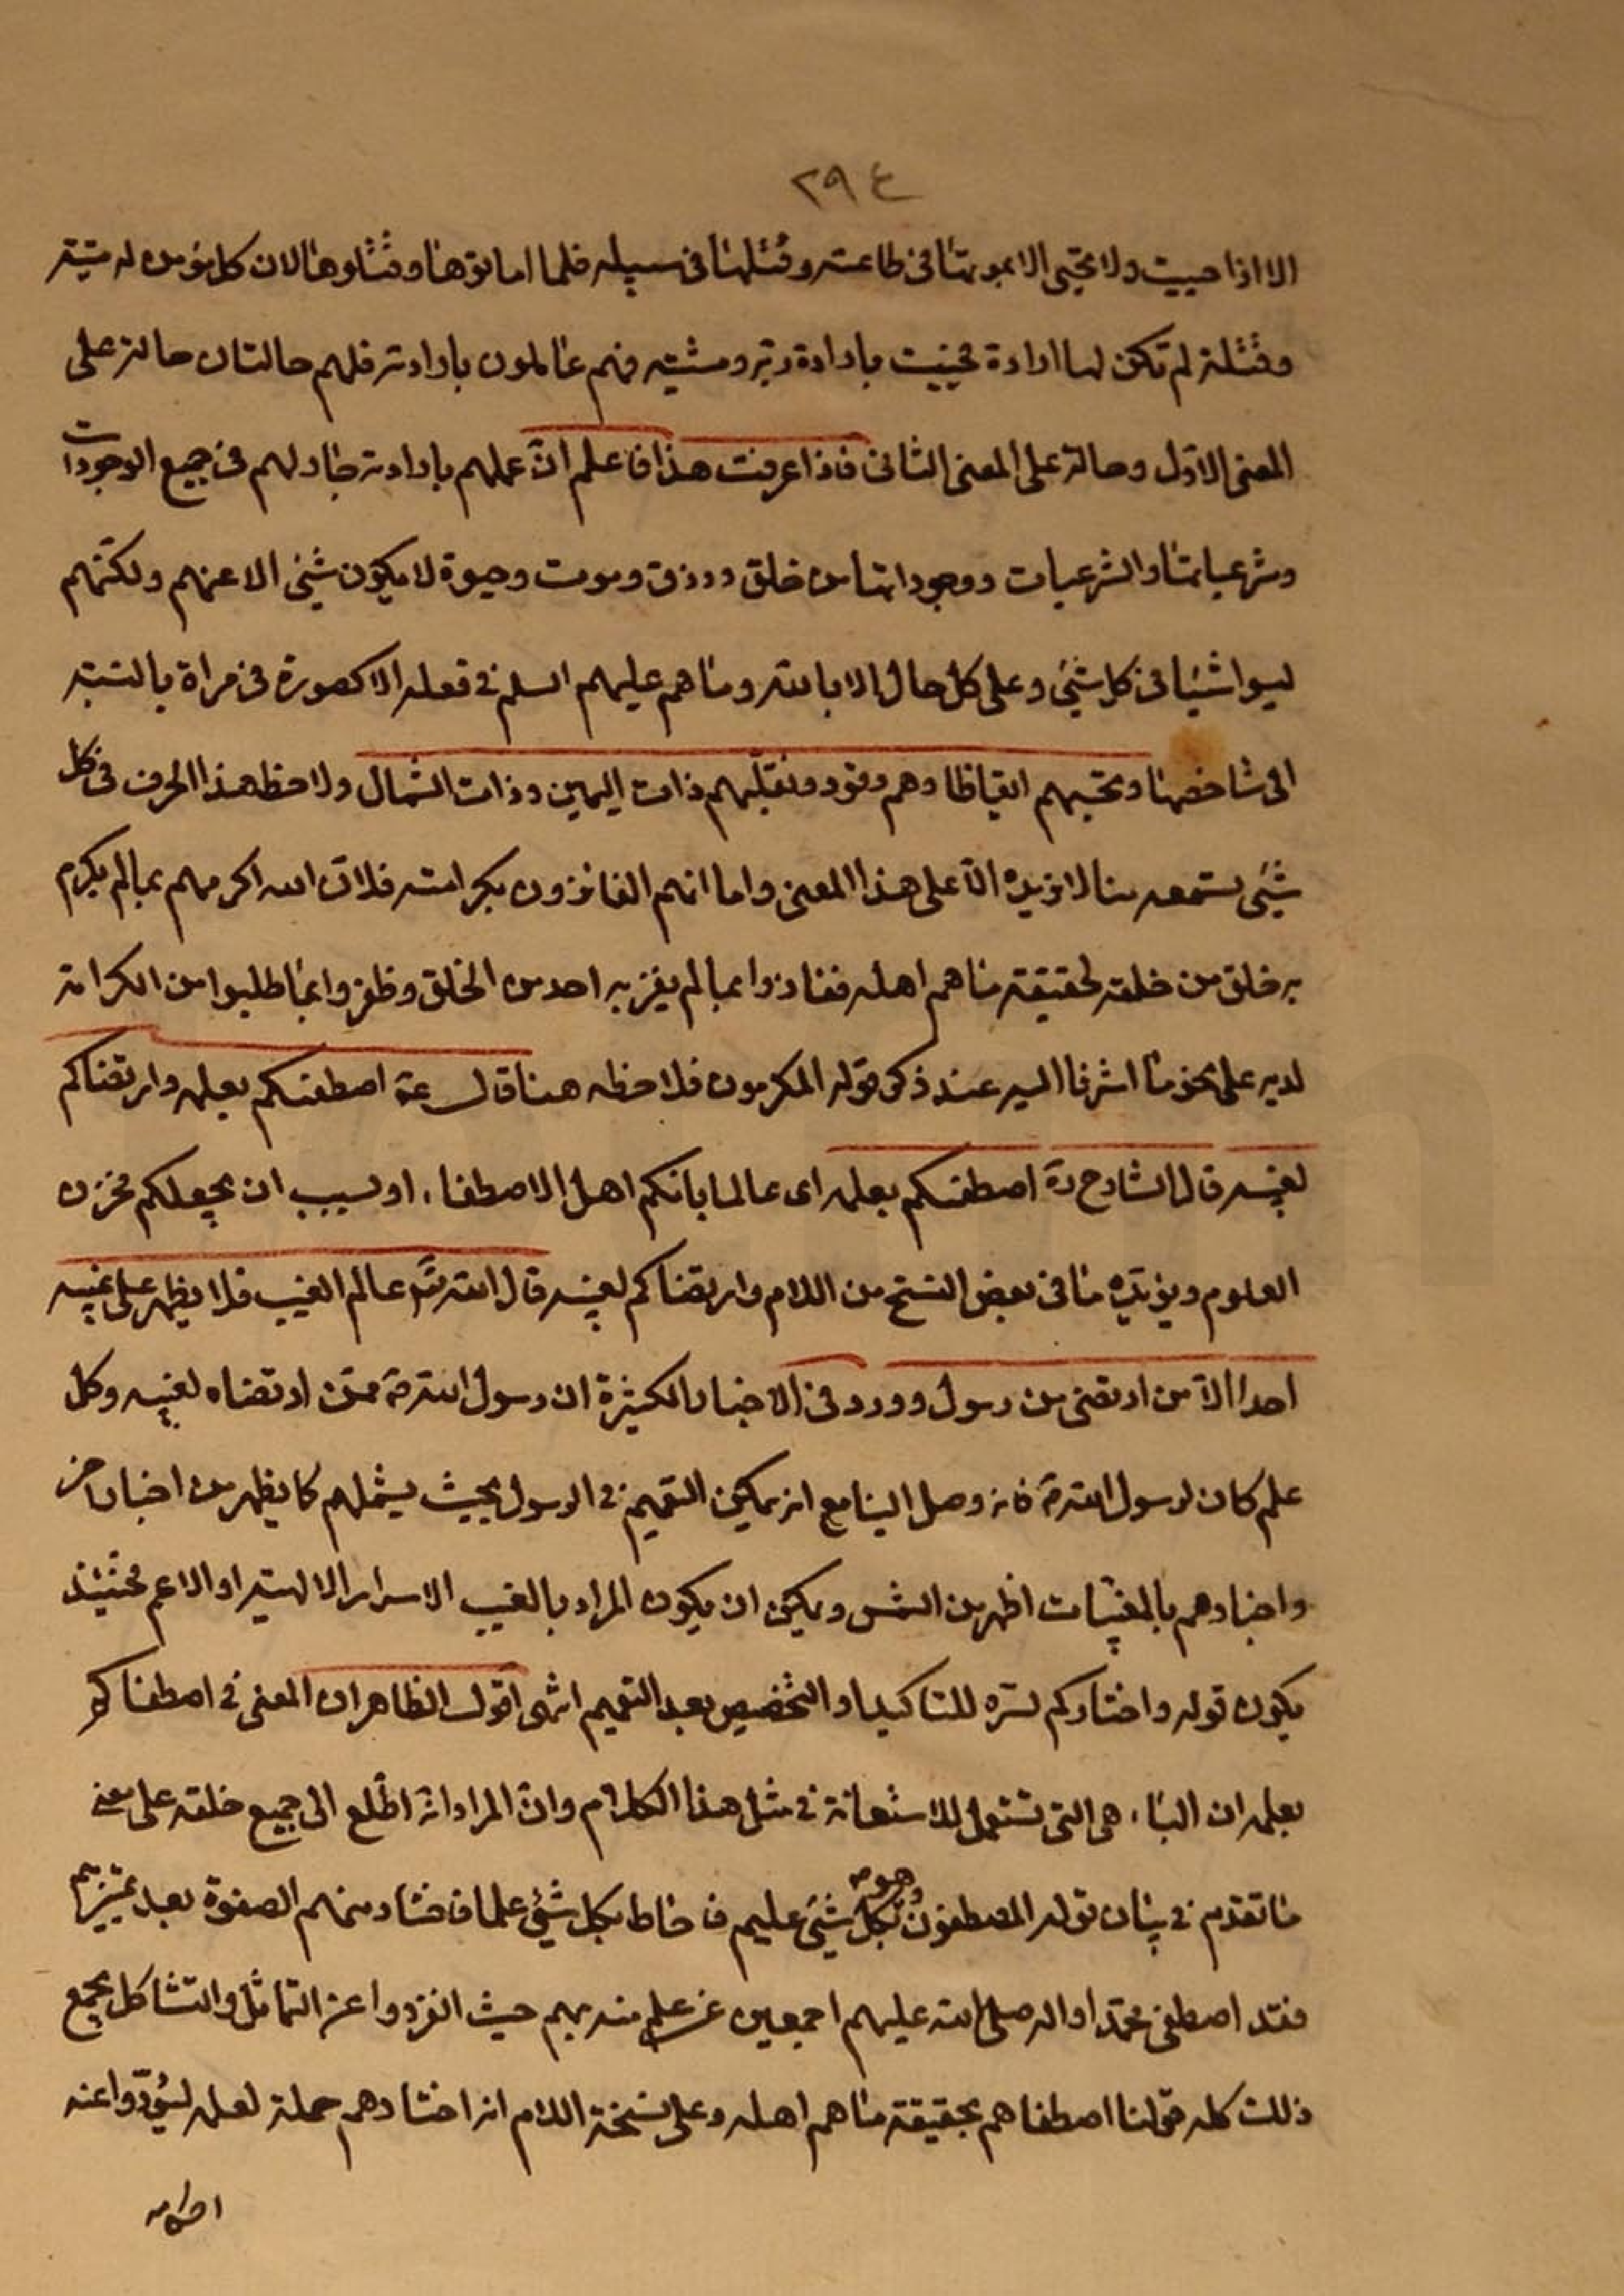 ٢٩٤
الا اذا حييت ولا تحيى الا بموتها فى طاعته وقتلها فى سبيله فلما اماتوها وقتلوها لان كل مؤمن له ميتة
وقتلة لم تكن لها ارادة فحييت بارادة ربه ومشيته فهم عاملون بارادته فلهم حالتان حالة على
المعنى الاول وحالة على المعنى الثانى فاذا عرفت هذا فاعلم ان عملهم بارادته جار لهم فى جميع الوجودات
وشرعياتها والشرعيات ووجوداتها من خلق ورزق وموت وحيوة لا يكون شئ الا عنهم ولكنهم
ليسوا شيئا فى كل شئ وعلى كل حال الا بالله وما هم عليهم السلم فى فعله الا كصورة فى مراة بالنسبة
الى شاخصها وتحسبهم ايقاظا وهم رقود ونقلبهم ذات اليمين وذات الشمال ولاحظ هذا الحرف فى كل
شئ تسمعه منا لا نريده الا على هذا المعنى واما انهم الفائزون بكرامته فلان الله اكرمهم بما لم يكرم
به خلق من خلقه لحقيقة ما هم اهله ففازوا بما لم يفز به احد من الخلق وظفروا بما طلبوا من الكرامة
لديه على نحو ما اشرنا اليه عند ذكر قوله المكرمون فلاحظه هنا قال ع اصطفيكم بعلمه وارتضاكم
لغيبه قال الشارح ره اصطفيكم بعلمه اى عالما بانكم اهل الاصطفاء او لسبب ان يجعلكم مخزن
العلوم ويؤيده ما فى بعض النسخ من اللام وارتضاكم لغيبه قال الله تع عالم الغيب فلا يظهر على غيبه
احدا الا من ارتضى من رسول وورد فى الاخبار الكثيرة ان رسول الله ص ممن ارتضاه لغيبه وكل
علم كان لرسول الله ص فانه وصل الينا مع انه يمكن التعميم فى الرسول بحيث يشملهم كما يظهر من اخبار اخر
واخبارهم بالمغيبات اظهر من الشمس ويمكن ان يكون المراد بالغيب الاسرار الالهية او الاعم فحينئذ
يكون قوله واختاركم لسره للتاكيد او التخصيص بعد التعميم انتهى اقول الظاهر ان المعنى فى اصطفاكم
بعلمه ان الباء هى التى تستعمل للاستعانة فى مثل هذا الكلام وان المراد انه اطلع الى جميع خلقه على معنى
ما تقدم فى بيان قوله المصطفون وهو بكل شئ عليم فاحاط بكل شئ علما فاختار منهم الصفوة بعد تمييزهم
فقد اصطفى محمدا واله صلى الله عليهم اجمعين عن علم منه بهم حيث انفردوا عن التماثل والتشاكل يجمع
ذلك كله قولنا اصطفاهم بحقيقة ما هم اهله وعلى نسخة اللام انه اختارهم حملة لعلمه ليؤدوا عنه